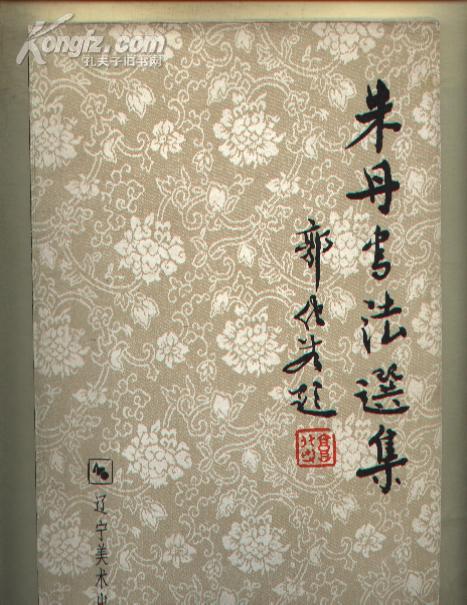 Kongfz.com
孔夫子旧书网
朱丹书法選集
郭化若题
辽宁美术出